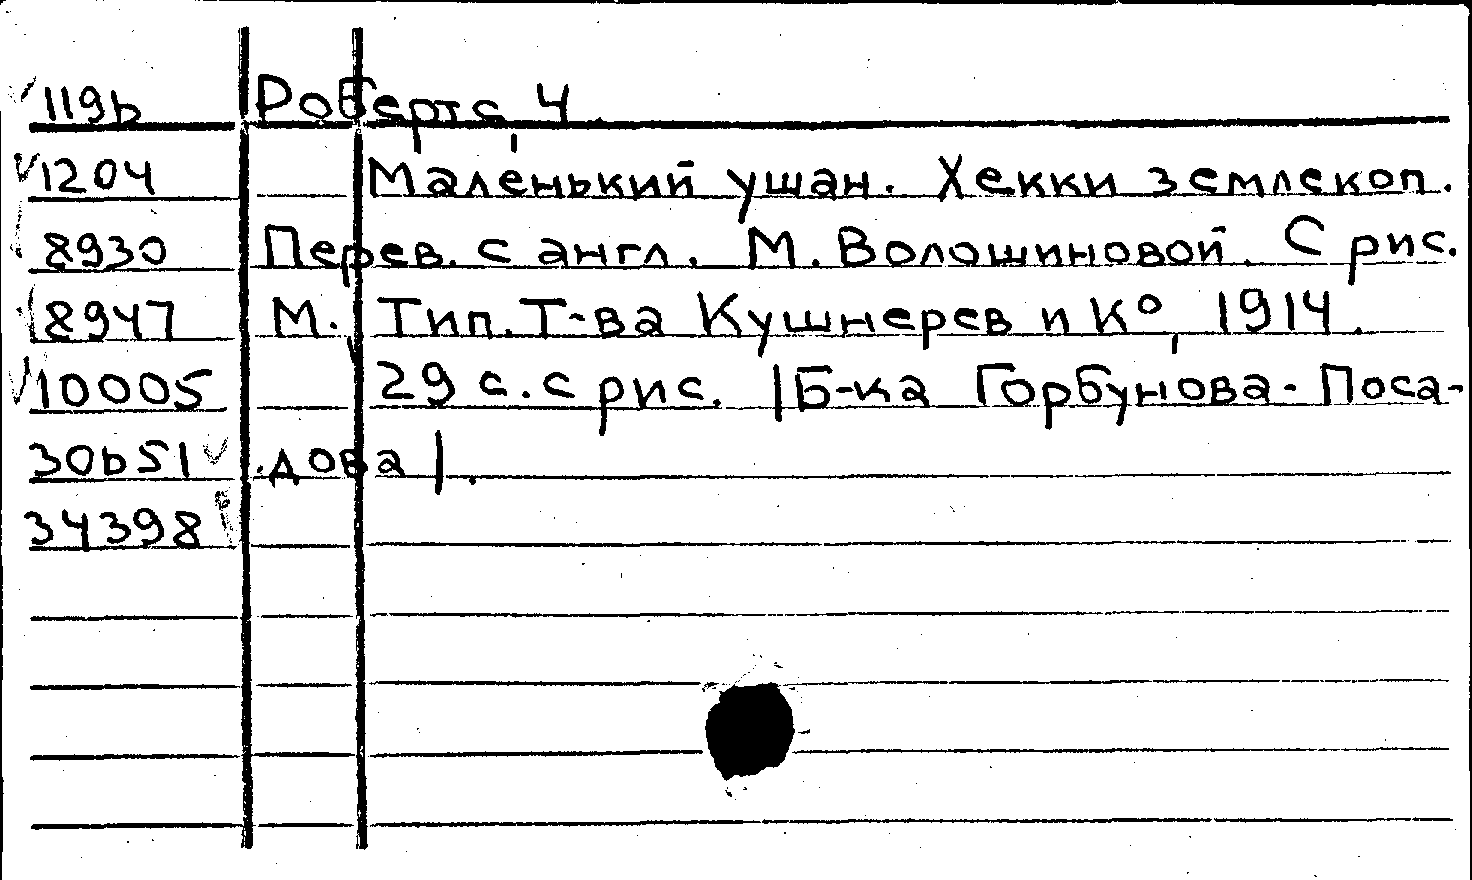 1196 Робертс, Ч.
1204 Маленький ушан. Хекки землекоп.
8930 Перев. с англ. М. Волошиновой. С рис.
8947 М., Тип. Т-ва Кушнерев и К°, 1914.
10005 29 с. с рис. |Б-ка Горбунова-Поса-
30651 дова|.
34398